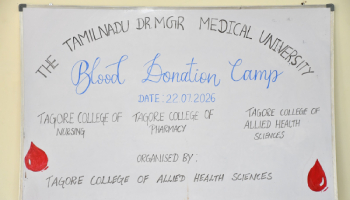 THE TAMILNADU DR.MGR MEDICAL UNIVERSITY
Blood Donation Camp
DATE: 22.07.2026
TAGORE COLLEGE OF NURSING
TAGORE COLLEGE OF PHARMACY
TAGORE COLLEGE OF ALLIED HEALTH SCIENCES
ORGANISED BY:
TAGORE COLLEGE OF ALLIED HEALTH SCIENCES